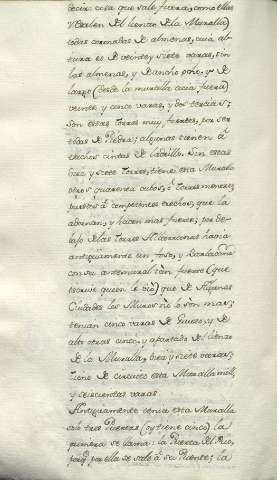 decir cosa que sale fuera, como ellas
salen del lienzo de la Muralla)
todas coronadas de almenas, cuia al-
tura es de veinte y siete varas, sin
las almenas, y de ancho ponze, y de
largo (desde la muralla acia fuera)
veinte y cinco varas, y dos tercias;
son estas torres mui fuertes, por ser
ellas de Piedra; algunas tienen â
trechos cintas de ladrillo. Sin estas
diez y siete torres, tiene esta Muralla
otros quarenta cubos, ô torres menores,
puestos â competentes trechos, que la
adornan, y hacen mas fuerte; por de-
bajo de las torres Albarranas havia
antiguamente un foso, y
con su antemural tàn fuerte (que
escrive quien lo viò) que de algunas
Ciudades los Muros nò lo son mas;
tenian cinco varas de Grueso, y de
alto otras cinco, y apartado del lienzo
de la Muralla, diez y siete varas;
tiene de circuito esta Muralla mill,
y seiscientas varas.
Antiguamente tenia esta Muralla
solo tres Puertas (oy tiene cinco) la
primera se llama: la Puerta del Rio,
porq por ella se sale â su Puente; la